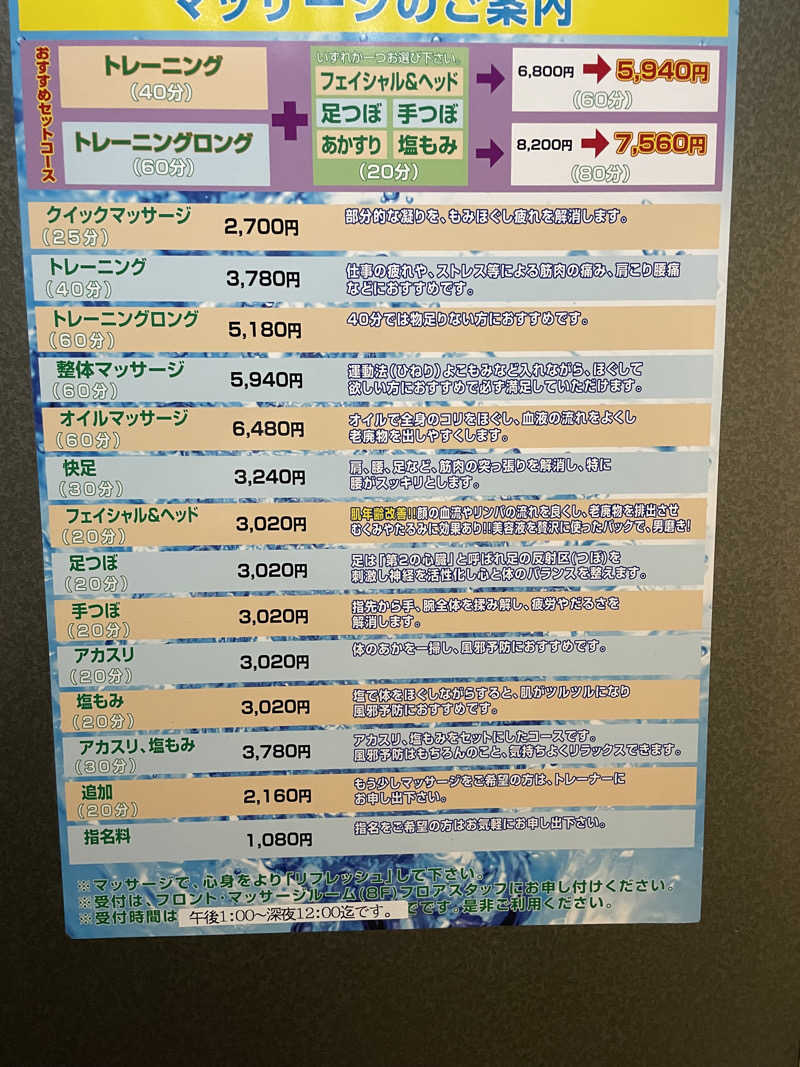 マッサージのご案内
おすすめセットコース
トレーニング
(40分)
トレーニングロング
(60分)
いずれか一つお選び下さい。
フェイシャル&ヘッド
足つぼ 手つぼ
あかすり 塩もみ
(20分)
6,800円 5,940円
(60分)
8,200円 7,560円
(80分)
クイックマッサージ
(25分)
2,700円
部分的な凝りを、もみほぐし疲れを解消します。
トレーニング
(40分)
3,780円
仕事の疲れや、ストレス等による筋肉の痛み、肩こり腰痛
などにおすすめです。
トレーニングロング
(60分)
5,180円
40分では物足りない方におすすめです。
整体マッサージ
(60分)
5,940円
運動法(ひねり)よこもみなど入れながら、ほぐして
欲しい方におすすめで必ず満足していただけます。
オイルマッサージ
(60分)
6,480円
オイルで全身のコリをほぐし、血液の流れをよくし
老廃物を出しやすくします。
快足
(30分)
3,240円
肩、腰、足など、筋肉の突っ張りを解消し、特に
腰がスッキリとします。
フェイシャル&ヘッド
(20分)
3,020円
肌年齢改善!!顔の血流やリンパの流れを良くし、老廃物を排出させ
むくみやたるみに効果あり!!美容液を贅沢に使ったパックで、男磨き!
足つぼ
(20分)
3,020円
足は「第2の心臓」と呼ばれ足の反射区(つぼ)を
刺激し神経を活性化し心と体のバランスを整えます。
手つぼ
(20分)
3,020円
指先から手、腕全体を揉み解し、疲労やだるさを
解消します。
アカスリ
(20分)
3,020円
体のあかを一掃し、風邪予防におすすめです。
塩もみ
(20分)
3,020円
塩で体をほぐしながらすると、肌がツルツルになり
風邪予防におすすめです。
アカスリ、塩もみ
(30分)
3,780円
アカスリ、塩もみをセットにしたコースです。
風邪予防はもちろんのこと、気持ちよくリラックスできます。
追加
(20分)
2,160円
もう少しマッサージをご希望の方は、トレーナーに
お申し出下さい。
指名料
1,080円
指名をご希望の方はお気軽にお申し出下さい。
※マッサージで、心身をより「リフレッシュ」して下さい。
※受付は、フロント・マッサージルーム(8F)フロアスタッフにお申し付けください。
※受付時間は 午後1:00〜深夜12:00迄です。 でです。是非ご利用ください。